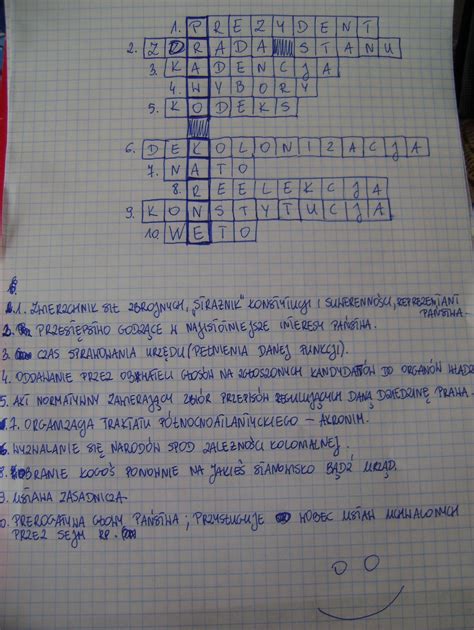 1. PREZYDENT
2. ZDRADA STANU
3. KADENCJA
4. WYBORY
5. KODEKS
6. DEKOLONIZACJA
7. NATO
8. REELEKCJA
9. KONSTYTUCJA
10. WETO
1. ZWIERZCHNIK SIŁ ZBROJNYCH, „STRAŻNIK” KONSTYTUCJI I SUWERENNOŚCI, REPREZENTANT
PAŃSTWA.
2. PRZESTĘPSTWO GODZĄCE W NAJISTOTNIEJSZE INTERESY PAŃSTWA.
3. CZAS SPRAWOWANIA URZĘDU (PEŁNIENIA DANEJ FUNKCJI).
4. ODDAWANIE PRZEZ OBYWATELI GŁOSÓW NA ZGŁOSZONYCH KANDYDATÓW DO ORGANÓW WŁADZ
5. AKT NORMATYWNY ZAWIERAJĄCY ZBIÓR PRZEPISÓW REGULUJĄCYCH DANĄ DZIEDZINĘ PRAWA.
7. ORGANIZACJA TRAKTATU PÓŁNOCNOATLANTYCKIEGO – AKRONIM.
6. WYZWALANIE SIĘ NARODÓW SPOD ZALEŻNOŚCI KOLONIALNEJ.
8. OBRANIE KOGOŚ PONOWNIE NA JAKIEŚ STANOWISKO BĄDŹ URZĄD.
9. USTAWA ZASADNICZA
0. PREROGATYWA GŁOWY PAŃSTWA; PRZYSŁUGUJE WOBEC USTAW UCHWALONYCH
PRZEZ SEJM RP.